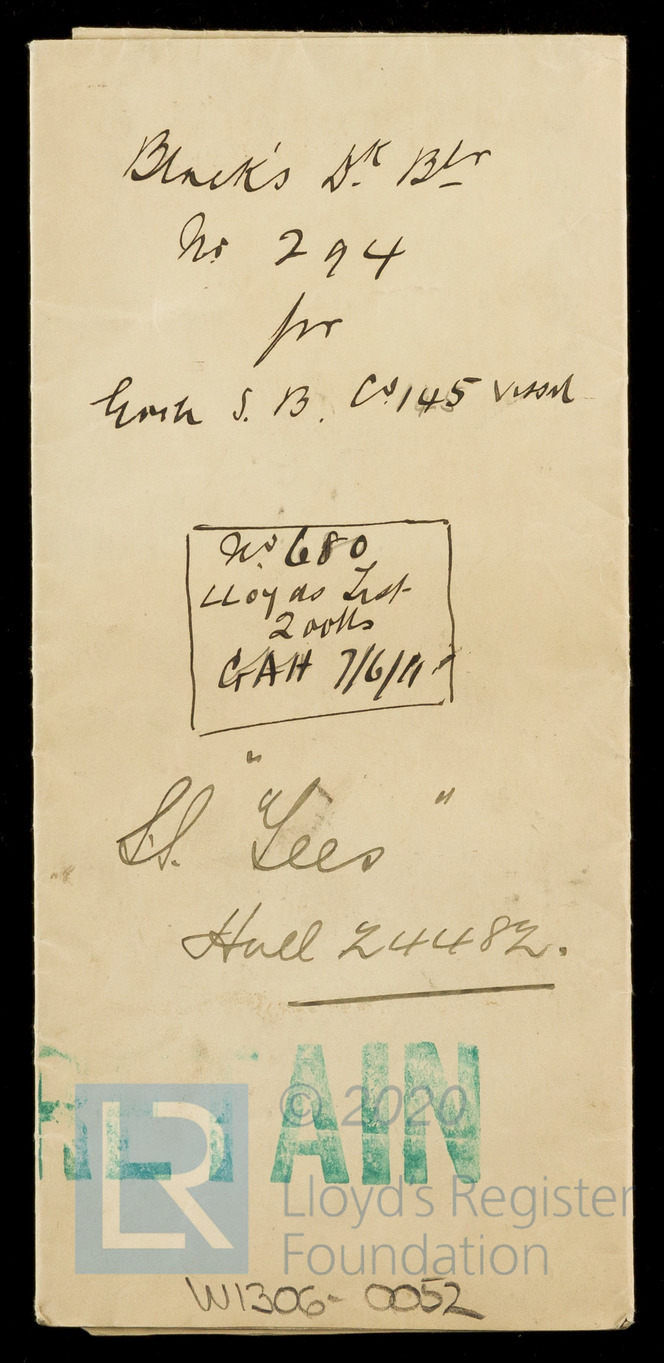 Black's Dk Blr
No 294
for
Goole S. B. Co 145 Vessel
No 680
Lloyds Test
200 lbs
GAH 7/6/11
S.S. "Lees"
Hull 24482.
RETAIN
© 2020
LR
Lloyd's Register
Foundation
W1306-0052